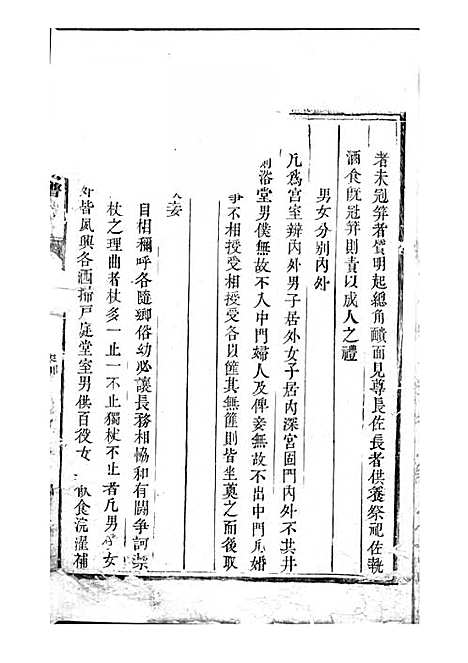 者未冠笄者質明起總角靧面見尊長佐長者供養祭祀佐執
酒食既冠笄則責以成人之禮
男女分別內外
凡為宮室辨內外男子居外女子居內深宮固門內外不共井
浴堂男僕無故不入中門婦人及俾妾無故不出中門凡婚
不相授受相授受各以篚其無篚則皆坐奠之而後取
妾
自相稱呼各隨鄉俗幼必讓長務相恊和有鬪爭訶禁
杖之理曲者杖多一止一不止獨杖不止者凡男女
皆夙興各洒掃戸庭堂室男供百役女 飲食浣濯補